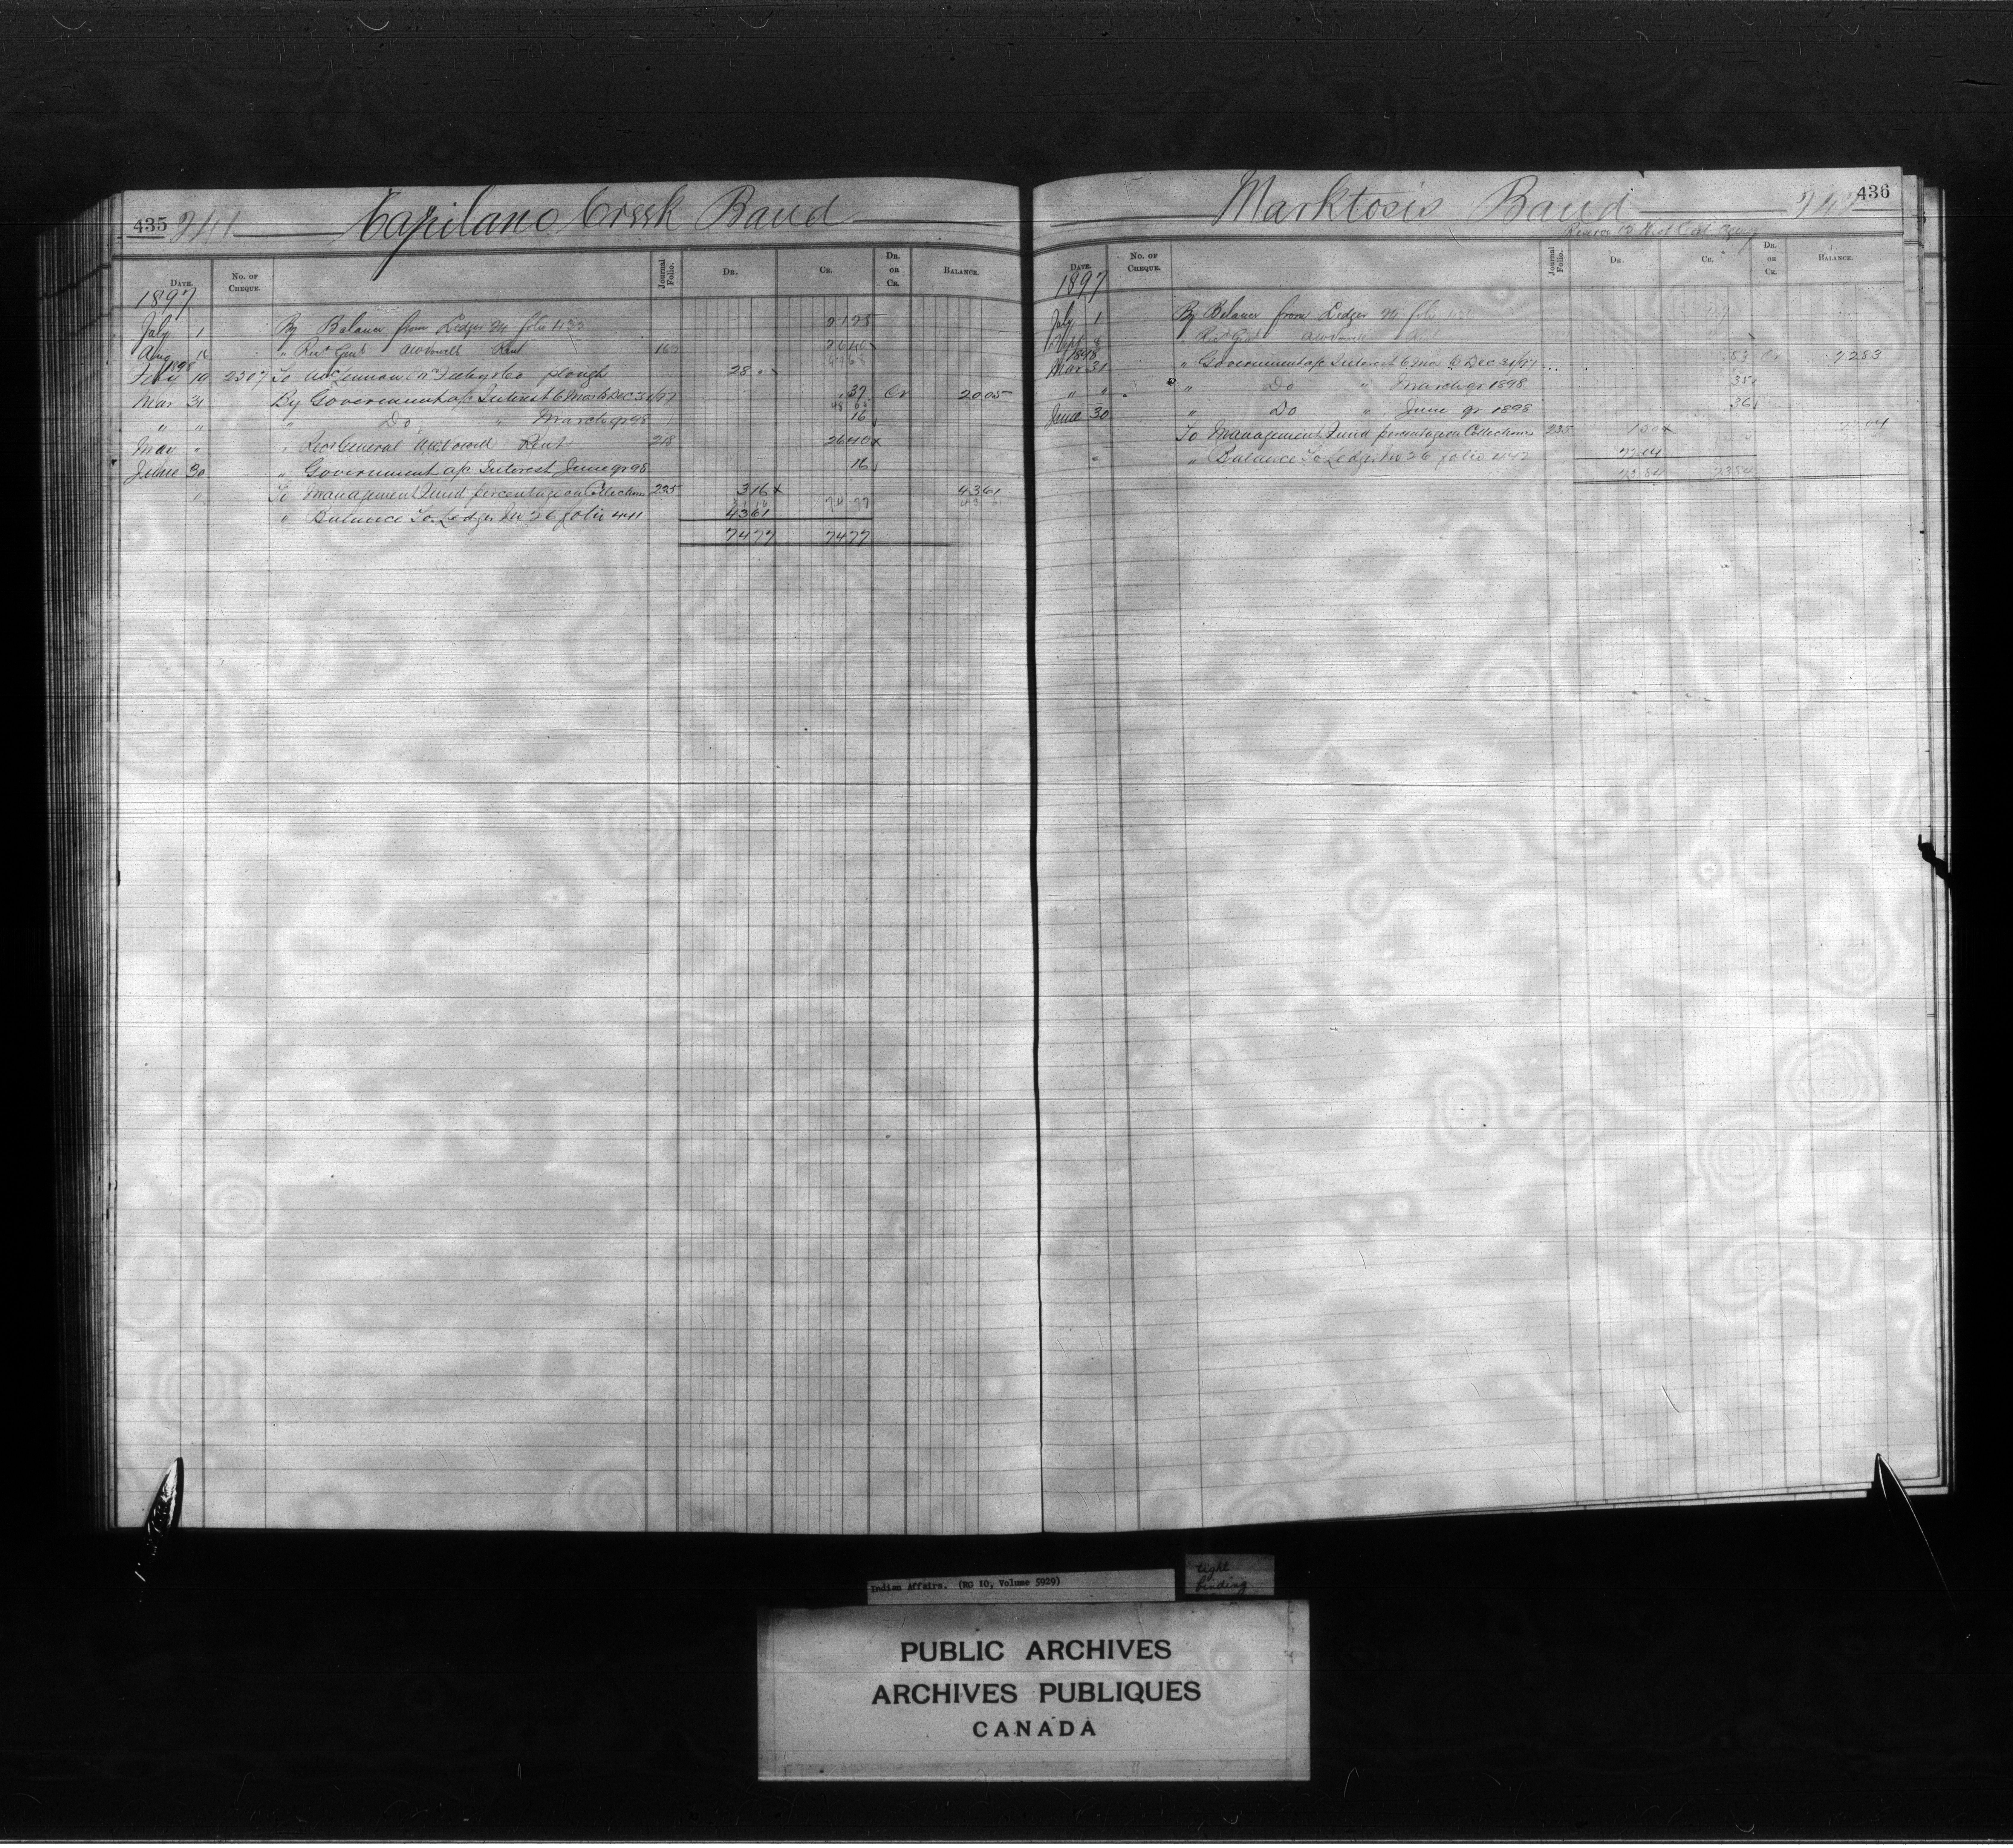 435 241 Capilano Creek Band
DATE. No. OF CHEQUE. Journal Folio. DR. CR. DR. OR CR. BALANCE.
1897
July 1 By Balance from Ledger M folio 21 28
Aug 16 " Rent 163 26 40
1898
Feby 19 2307 To McLennan McFeely & Co plough 28 "
Mar 31 By Government a/c Interest 6 Mos to Dec 31/97 37 Cr 20 05
" " " Do " March qr 98 16
May " " Rec General Rent 218 26 40
June 30 " Government a/c Interest June qr 98 16
" To Management Fund percentage on Collections 235 3 16 43 61
" Balance To Ledger No 26 folio 441 43 61
74 77 74 77
Marktosis Band 242 436
Reserve 15 West Coast Agency
DATE. No. OF CHEQUE. Journal Folio. DR. CR. DR. OR CR. BALANCE.
1897
July 1 By Balance from Ledger M folio
Sept 8 " Rent
1898
Mar 31 " Government a/c Interest 6 Mos to Dec 31/97 53 Cr
" " " Do " March qr 1898 35
June 30 " Do " June qr 1898 36
To Management Fund percentage on Collections 235 1 50 22 04
" " Balance To Ledger No 26 folio 442 22 04
23 54 23 54
Indian Affairs. (RG 10, Volume 5929)
tight binding
PUBLIC ARCHIVES
ARCHIVES PUBLIQUES
CANADA